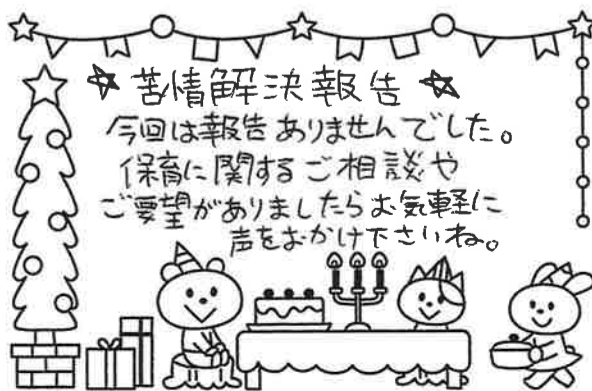 ☆ 苦情解決報告 ☆
今回は報告ありませんでした。
保育に関するご相談や
ご要望がありましたらお気軽に
声をおかけ下さいね。